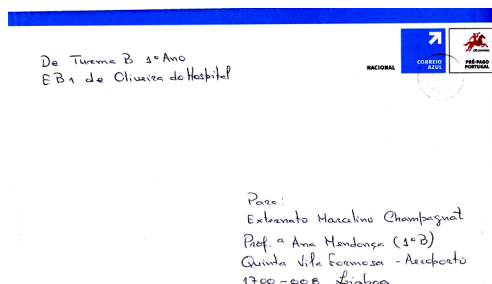 De Turma B 1º Ano
EB1 de Oliveira do Hospital
NACIONAL
CORREIO
AZUL
PRÉ-PAGO
PORTUGAL
Para:
Externato Marcelino Champagnat
Prof.ª Ana Mendonça (1º B)
Quinta Vila Formosa - Aeroporto
1700-008 Lisboa